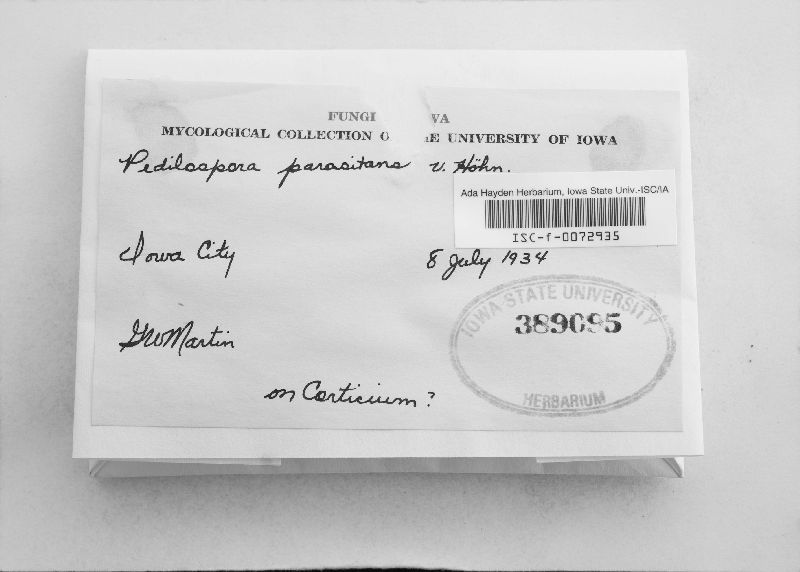 FUNGI VA
MYCOLOGICAL COLLECTION O E UNIVERSITY OF IOWA
Pedilospora parasitans v. Höhn.
Ada Hayden Herbarium, Iowa State Univ.-ISC/IA
ISC-f-0072935
Iowa City 8 July 1934
IOWA STATE UNIVERSITY
389095
GWMartin
on Corticium?
HERBARIUM